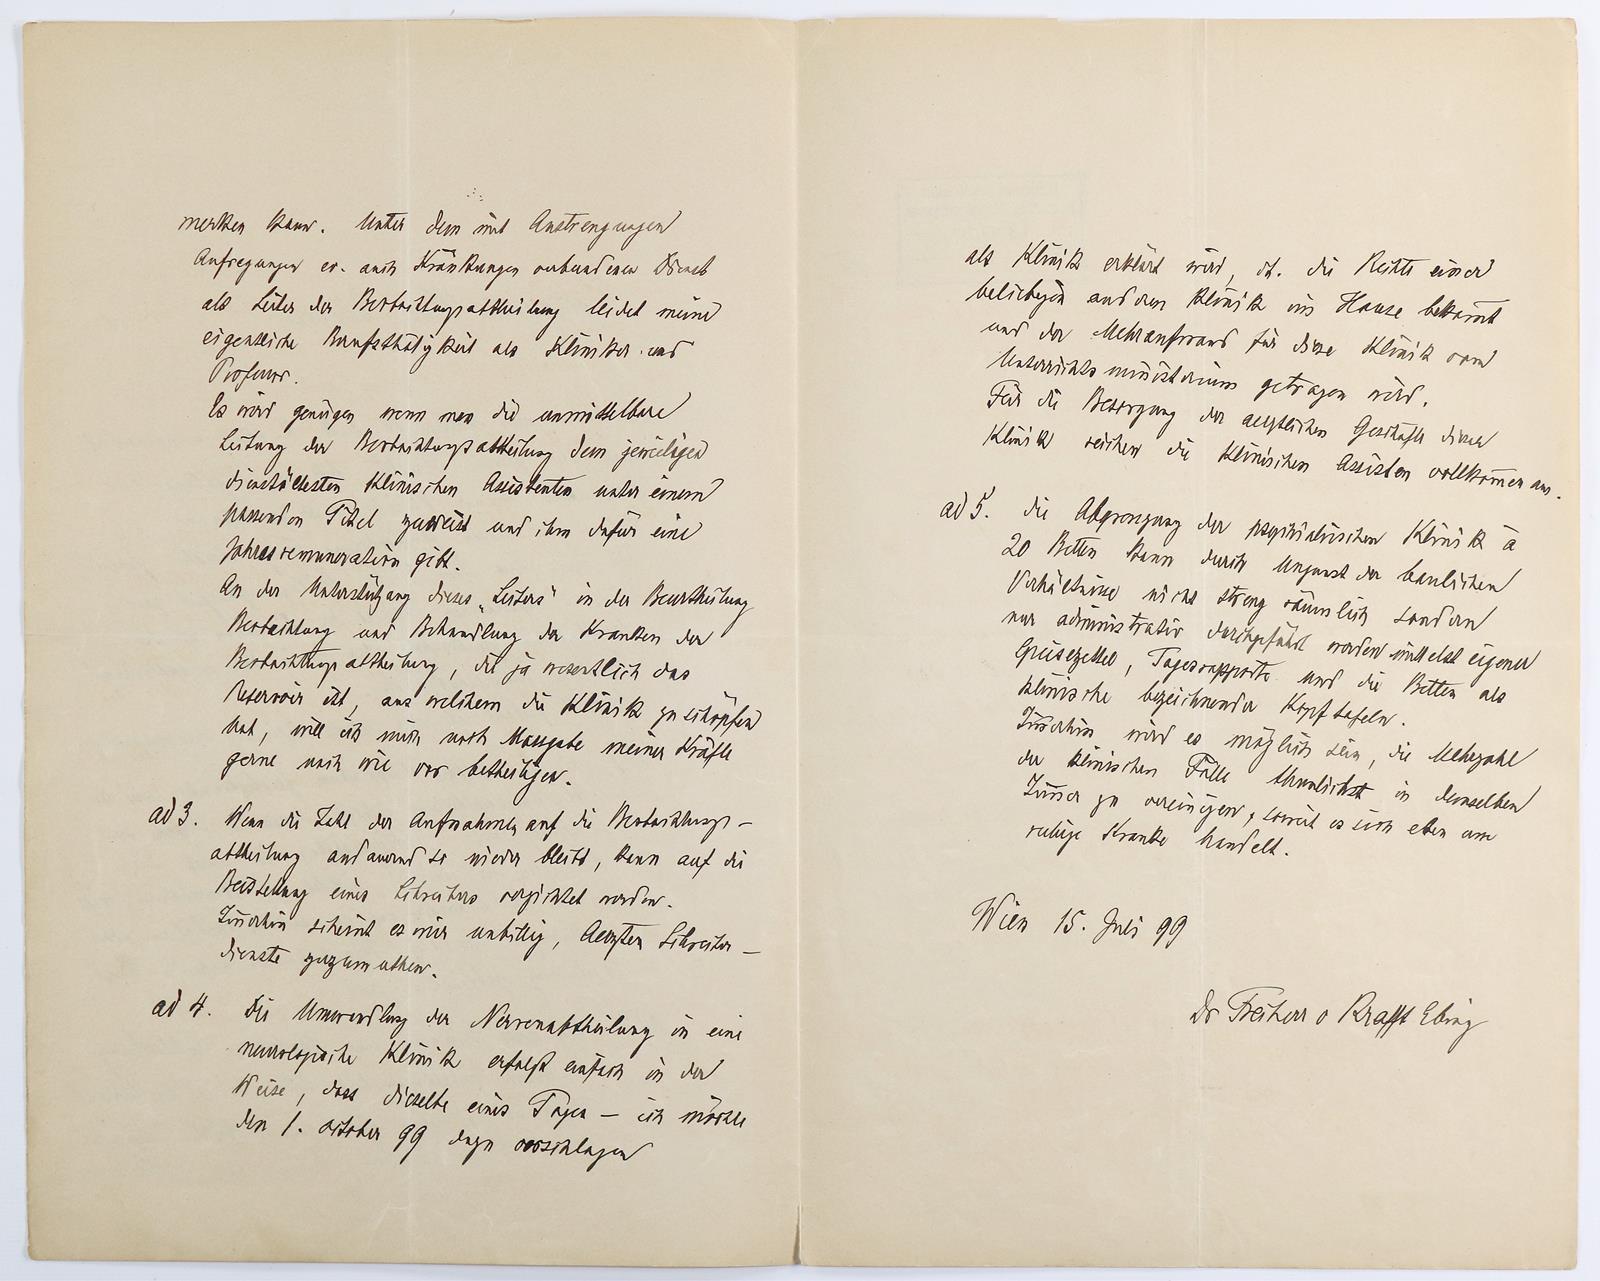 merken kann. Unter dem mit Anstrengungen
Aufregungen ev. auch Kränkungen verbundenen Dienst
als Leiter der Beobachtungsabtheilung leidet meine
eigentliche Berufsthätigkeit als Kliniker und
Professor.
Es wird genügen wenn man die unmittelbare
Leitung der Beobachtungsabtheilung dem jeweiligen
dienstältesten klinischen Assistenten unter einem
passenden Titel zuweist und ihm dafür eine
Jahresremuneration gibt.
An der Unterstützung dieses „Leiters“ in der Beurtheilung
Beobachtung und Behandlung der Kranken der
Beobachtungsabtheilung, die ja wesentlich das
Reservoir ist, aus welchem die Klinik zu schöpfen
hat, will ich mich nach Massgabe meiner Kräfte
gerne nach wie vor betheiligen.
ad 3. Wenn die Zahl der Aufnahmen auf die Beobachtungs-
abtheilung andauernd so nieder bleibt, kann auf die
Beistellung eines Schreibers verzichtet werden.
Im̅erhin scheint es mir unbillig, Aerzten Schreiber-
dienste zuzumuthen.
ad 4. Die Umwandlung der Nervenabtheilung in eine
neurologische Klinik erfolgt einfach in der
Weise, dass dieselbe eines Tages – ich möchte
den 1. october 99 dazu vorschlagen
als Klinik erklärt wird, d. die Rechte einer
beliebigen anderen Klinik im Hause bekom̅t
und der Mehraufwand für diese Klinik vom
Unterrichtsministerium getragen wird.
Für die Besorgung der aerztlichen Geschäfte dieser
Klinik reichen die klinischen Assisten vollkom̅en aus.
ad 5. die Abgrenzung der psychiatrischen Klinik à
20 Betten kann durch Ungunst der baulichen
Verhältnisse nicht streng räumlich sondern
nur administrativ durchgeführt werden mittelst eigener
Speisezettel, Tagesrapporte und die Betten als
klinische bezeichnender Kopftafeln.
Im̅erhin wird es möglich sein, die Mehrzahl
der klinischen Fälle thunlichst in demselben
Zim̅er zu vereinigen, soweit es sich eben um
ruhige Kranke handelt.
Wien 15. Juli 99
Dr Freiherr v Krafft Ebing